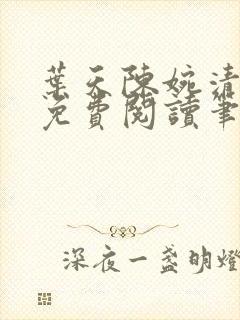 葉天陳婉清
免費閱讀筆
深夜一盞明燈